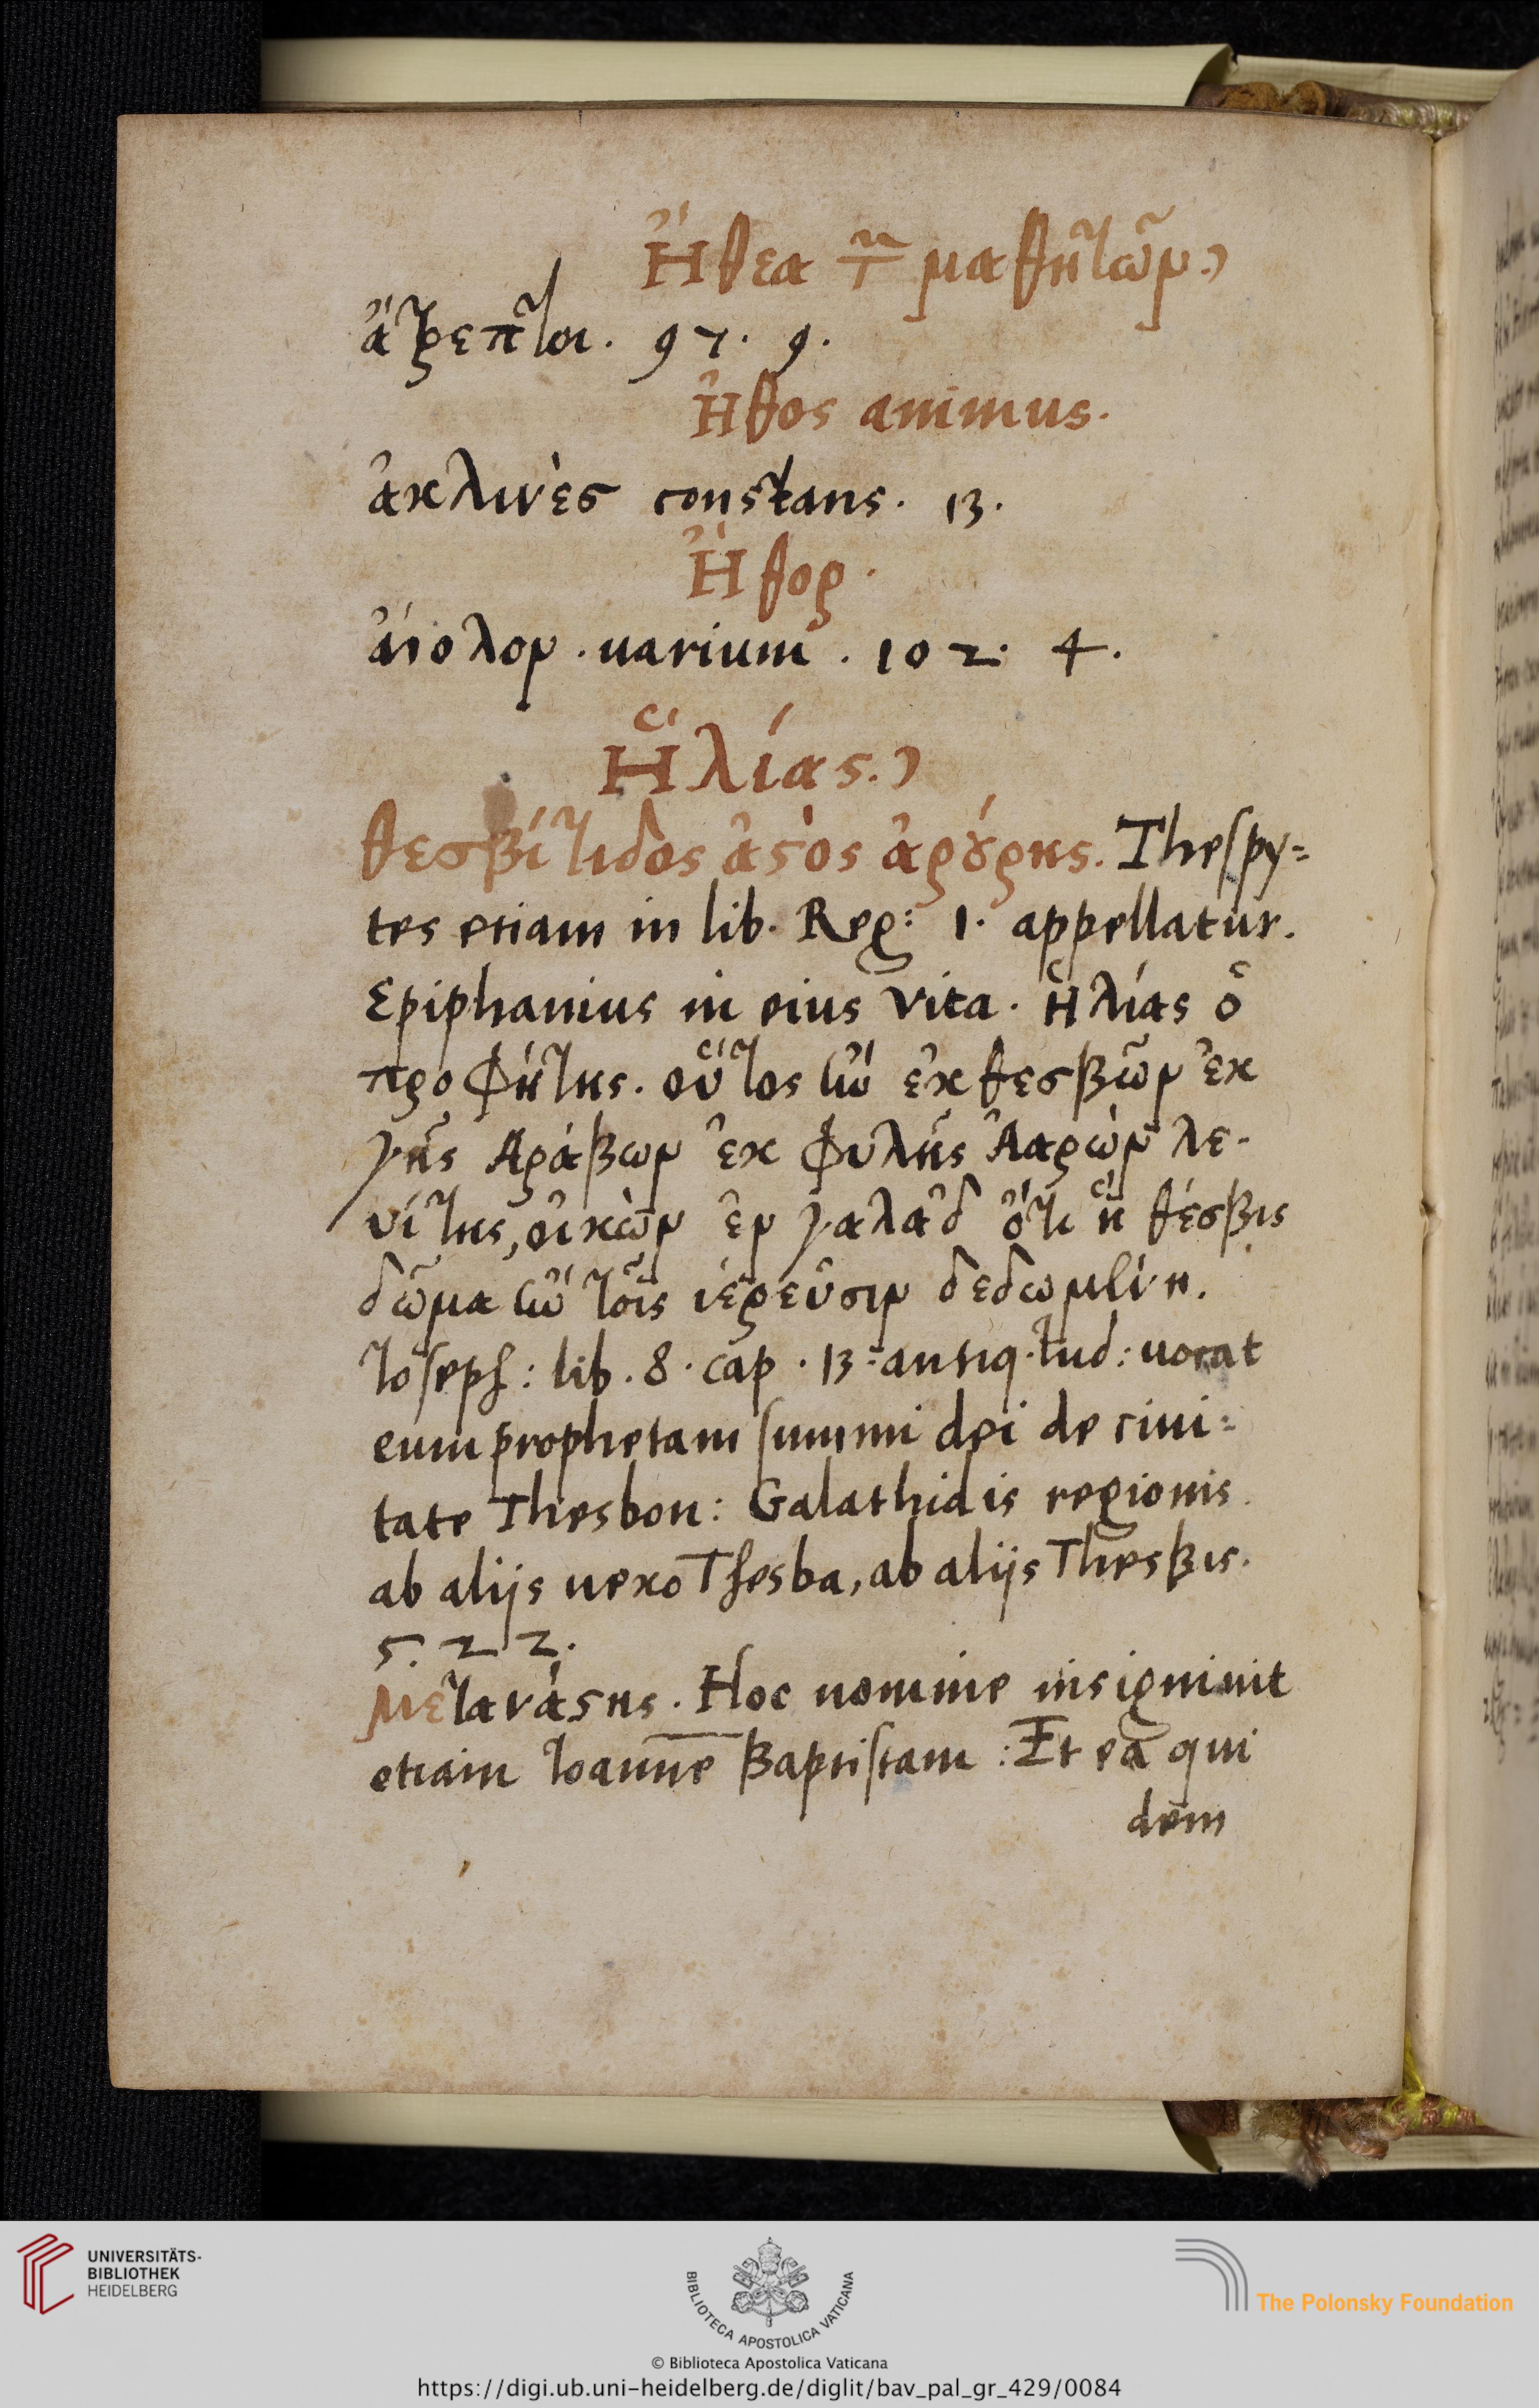 Ἤθεα τ̃ μαθητῶν.
ἄτρεπτοι. 97. 9.
Ἦθος animus.
ἀκλινὲς constans. 13.
Ἦτορ.
ἀίολον. uarium. 102. 4.
Ἡλίας.
θεσβίτιδος ἀστὸς ἀρούρης. Thespy=
tes etiam in lib. Reg: 1. appellatur.
Epiphanius in eius vita. Ἡλίας ὁ
προφήτης. οὗτος ἦν ἐκ θεσβῶν ἐκ
γῆς Αράβων ἐκ φυλῆς Ἀαρὼν λε-
υίτης, οἰκῶν ἐν γαλαὰδ ὅτι ἡ θέσβις
δῶμα ἦν τοῖς ἱερεῦσιν δεδωμένη.
Ioseph: lib. 8. cap. 13. antiq. Iud: uocat
eum prophetam summi dei de ciui=
tate Thesbon: Galathidis regionis.
ab alijs uero Thesba, ab alijs Thesβις.
5. 22.
Μετανάστης. Hoc nomine insigniuit
etiam Ioannē Baptistam: Et ea qui
dem
UNIVERSITÄTS-
BIBLIOTHEK
HEIDELBERG
BIBLIOTECA APOSTOLICA VATICANA
The Polonsky Foundation
© Biblioteca Apostolica Vaticana
https://digi.ub.uni-heidelberg.de/diglit/bav_pal_gr_429/0084